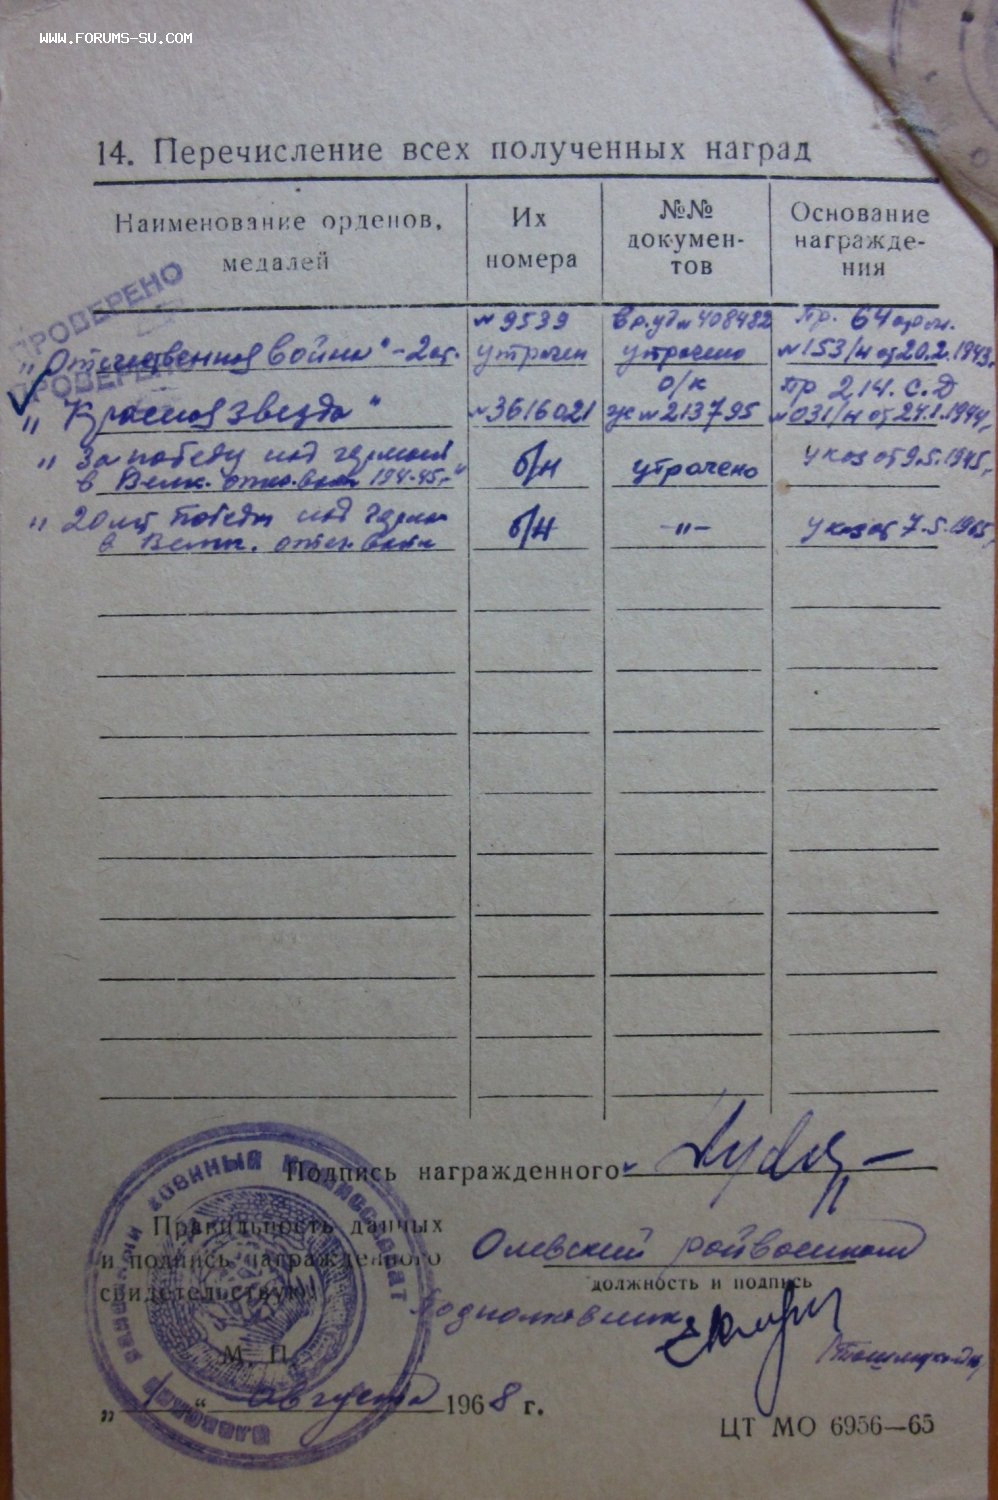 WWW.FORUMS-SU.COM
14. Перечисление всех полученных наград
Наименование орденов, медалей
Их номера
№№ докумен-тов
Основание награжде-ния
ПРОВЕРЕНО
ПРОВЕРЕНО
"Отечественная война" - 2 ст.
№ 9539 утрачен
вр. уд № 408482 утрачено
Пр. 64 арм. № 153/н от 20.2.1943,
"Красная звезда"
№ 3616021
о/к № 213795
Пр 214. С.Д № 031/н от 24.1.1944,
"За победу над германией
в Велик. отеч. войне 194-45,"
б/н
утрачено
указ от 9.5.1945,
"20 лет победы над
в Велик. отеч. войне
б/н
-"-
указ от 7.5.1965,
Подпись награжденного
Правильность данных
и подпись награжденного
свидетельствую
Олевский райвоенком
должность и подпись
Подполковник
М. П.
"1" августа 1968 г.
ЦТ МО 6956—65